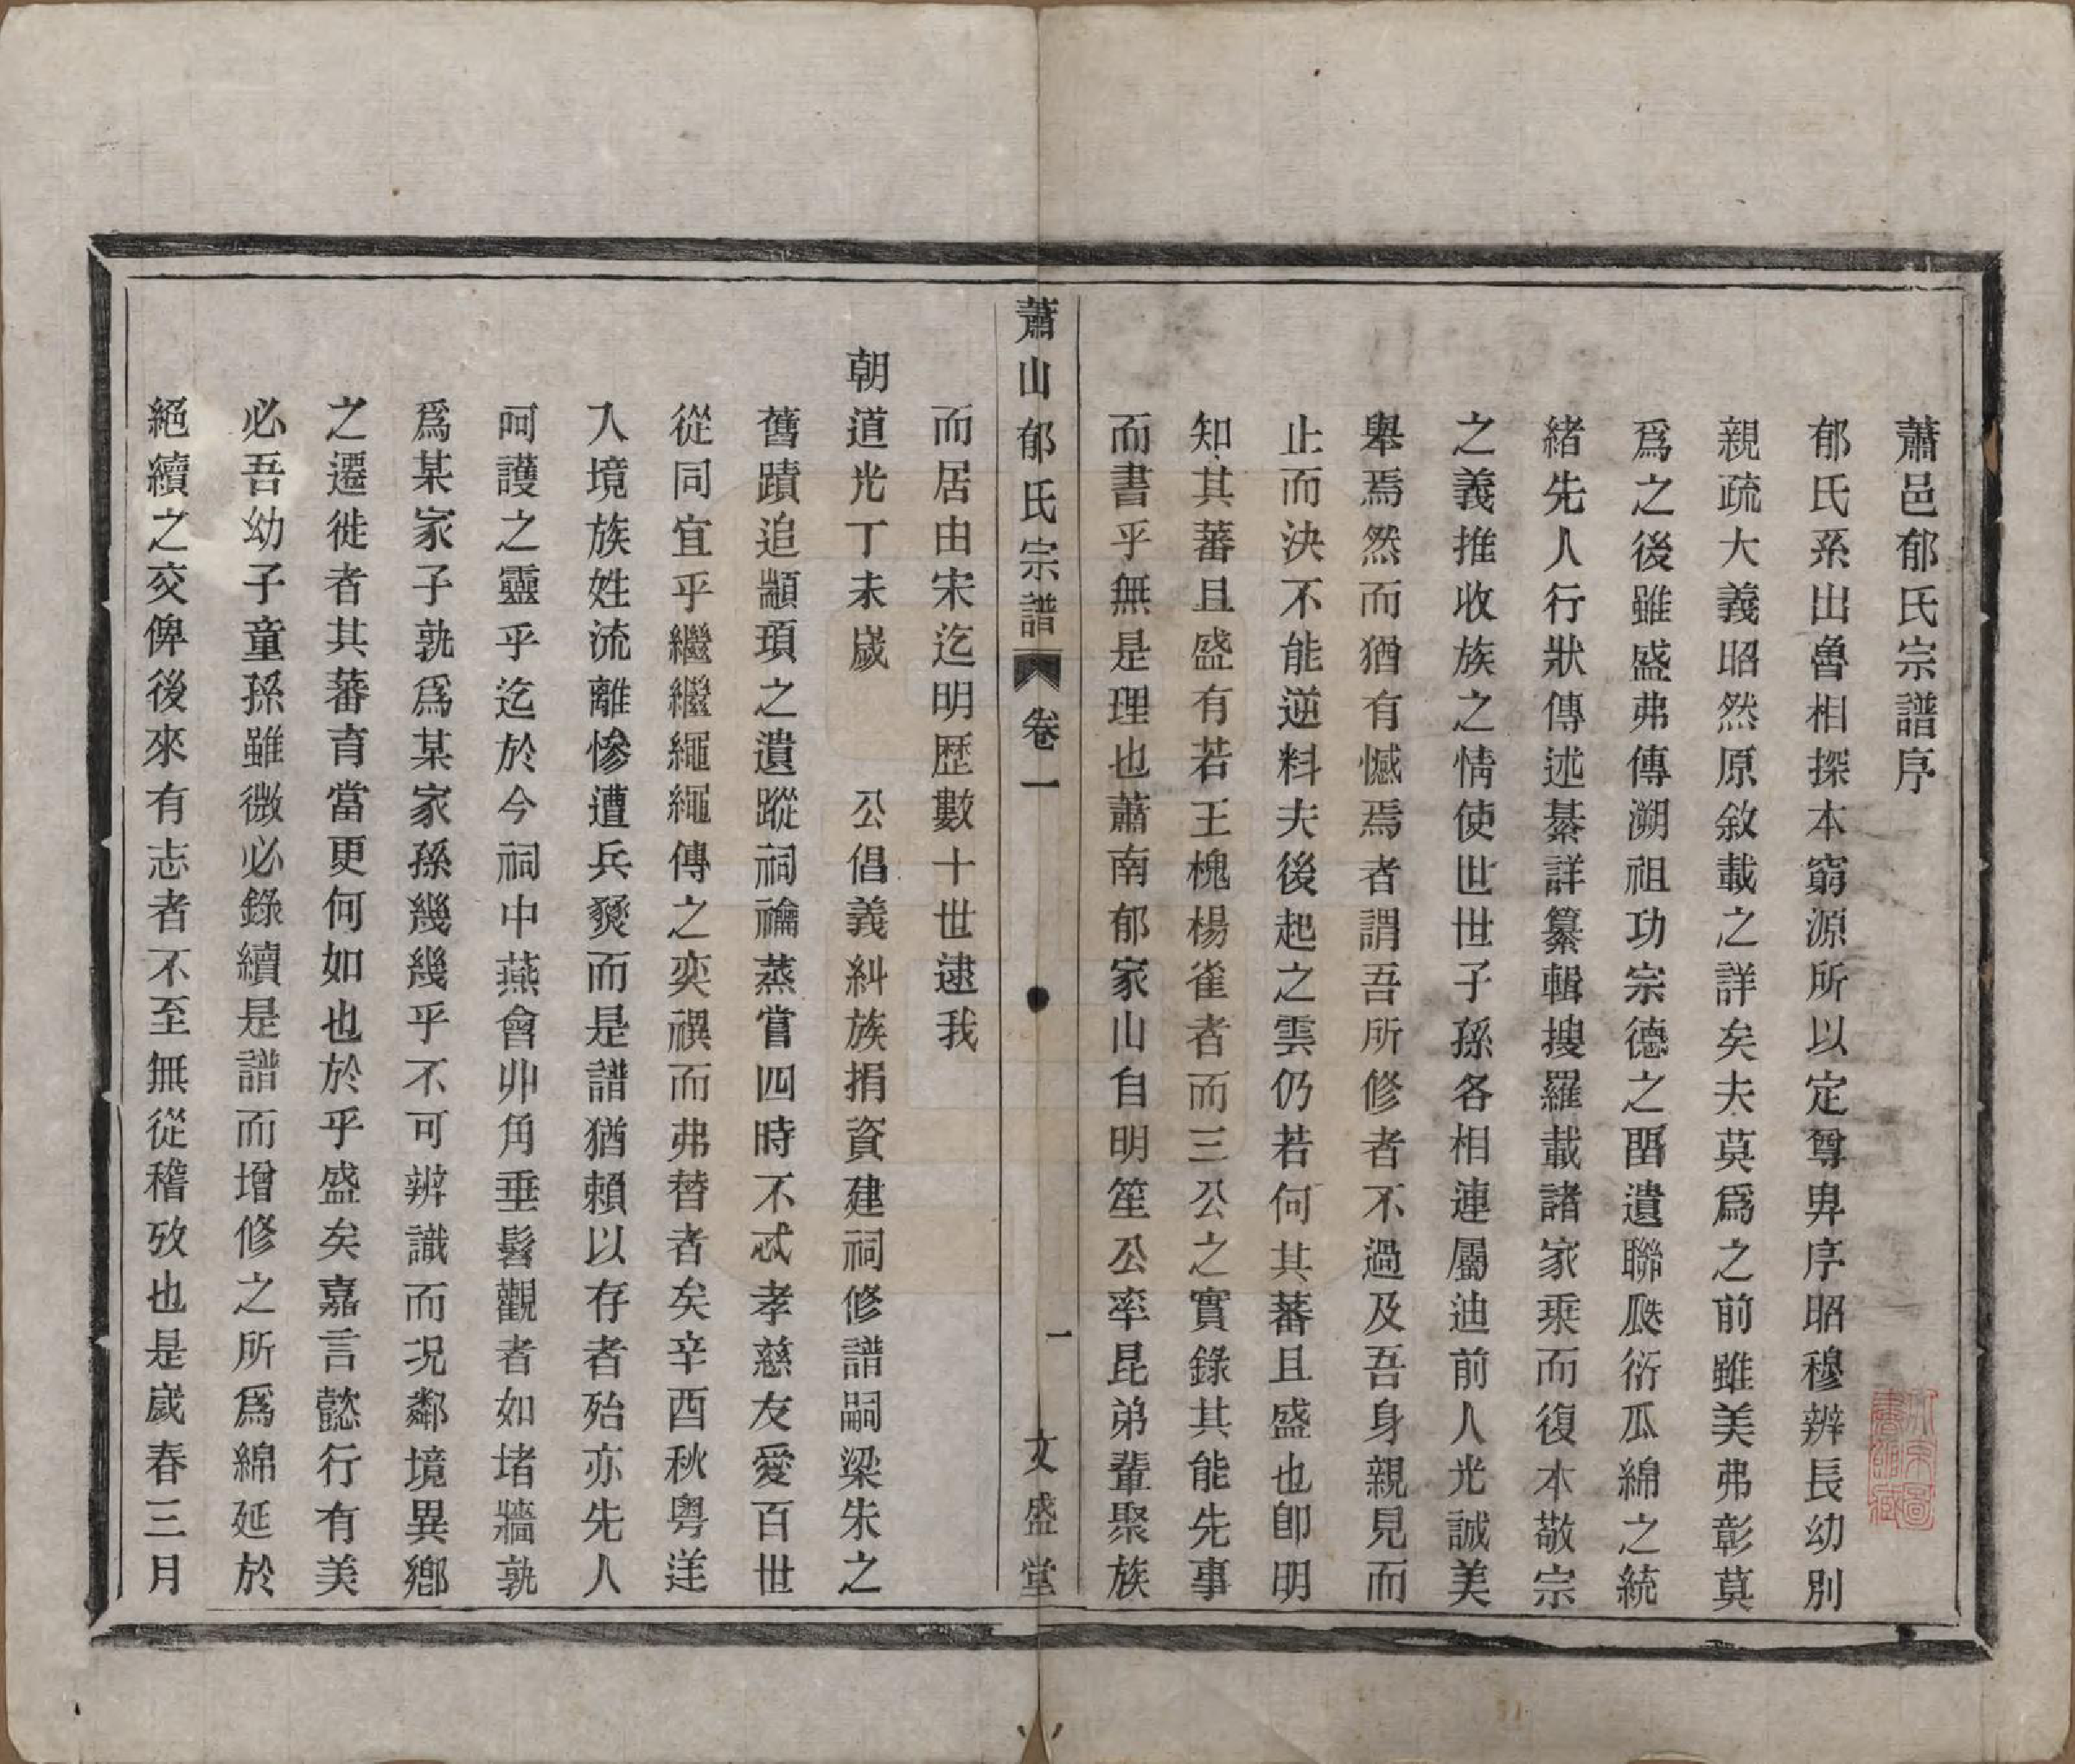 蕭邑郁氏宗譜序
郁氏系出魯相探本窮源所以定尊卑序昭穆辨長幼別
親疏大義昭然原敘載之詳矣夫莫爲之前雖美弗彰莫
爲之後雖盛弗傳溯祖功宗德之畱遺聯瓞衍瓜綿之統
緒先人行狀傳述綦詳纂輯搜羅載諸家乘而復本敬宗
之義推收族之情使世世子孫各相連屬迪前人光誠美
舉焉然而猶有憾焉者謂吾所修者不過及吾身親見而
止而決不能逆料夫後起之雲仍若何其蕃且盛也卽明
知其蕃且盛有若王槐楊雀者而三公之實錄其能先事
而書乎無是理也蕭南郁家山自明笙公率昆弟輩聚族
蕭山郁氏宗譜 卷一 一 文盛堂
而居由宋迄明歷數十世逮我
朝道光丁未歲 公倡義糾族捐資建祠修譜嗣梁朱之
舊蹟追顓頊之遺蹤祠禴蒸嘗四時不忒孝慈友愛百世
從同宜乎繼繼繩繩傳之奕禩而弗替者矣辛酉秋粵逆
入境族姓流離慘遭兵燹而是譜猶賴以存者殆亦先人
呵護之靈乎迄於今祠中燕會丱角垂髫觀者如堵牆孰
爲某家子孰爲某家孫幾幾乎不可辨識而况鄰境異鄉
之遷徙者其蕃育當更何如也於乎盛矣嘉言懿行有美
必吾幼子童孫雖微必錄續是譜而增修之所爲綿延於
絕續之交俾後來有志者不至無從稽攷也是歲春三月